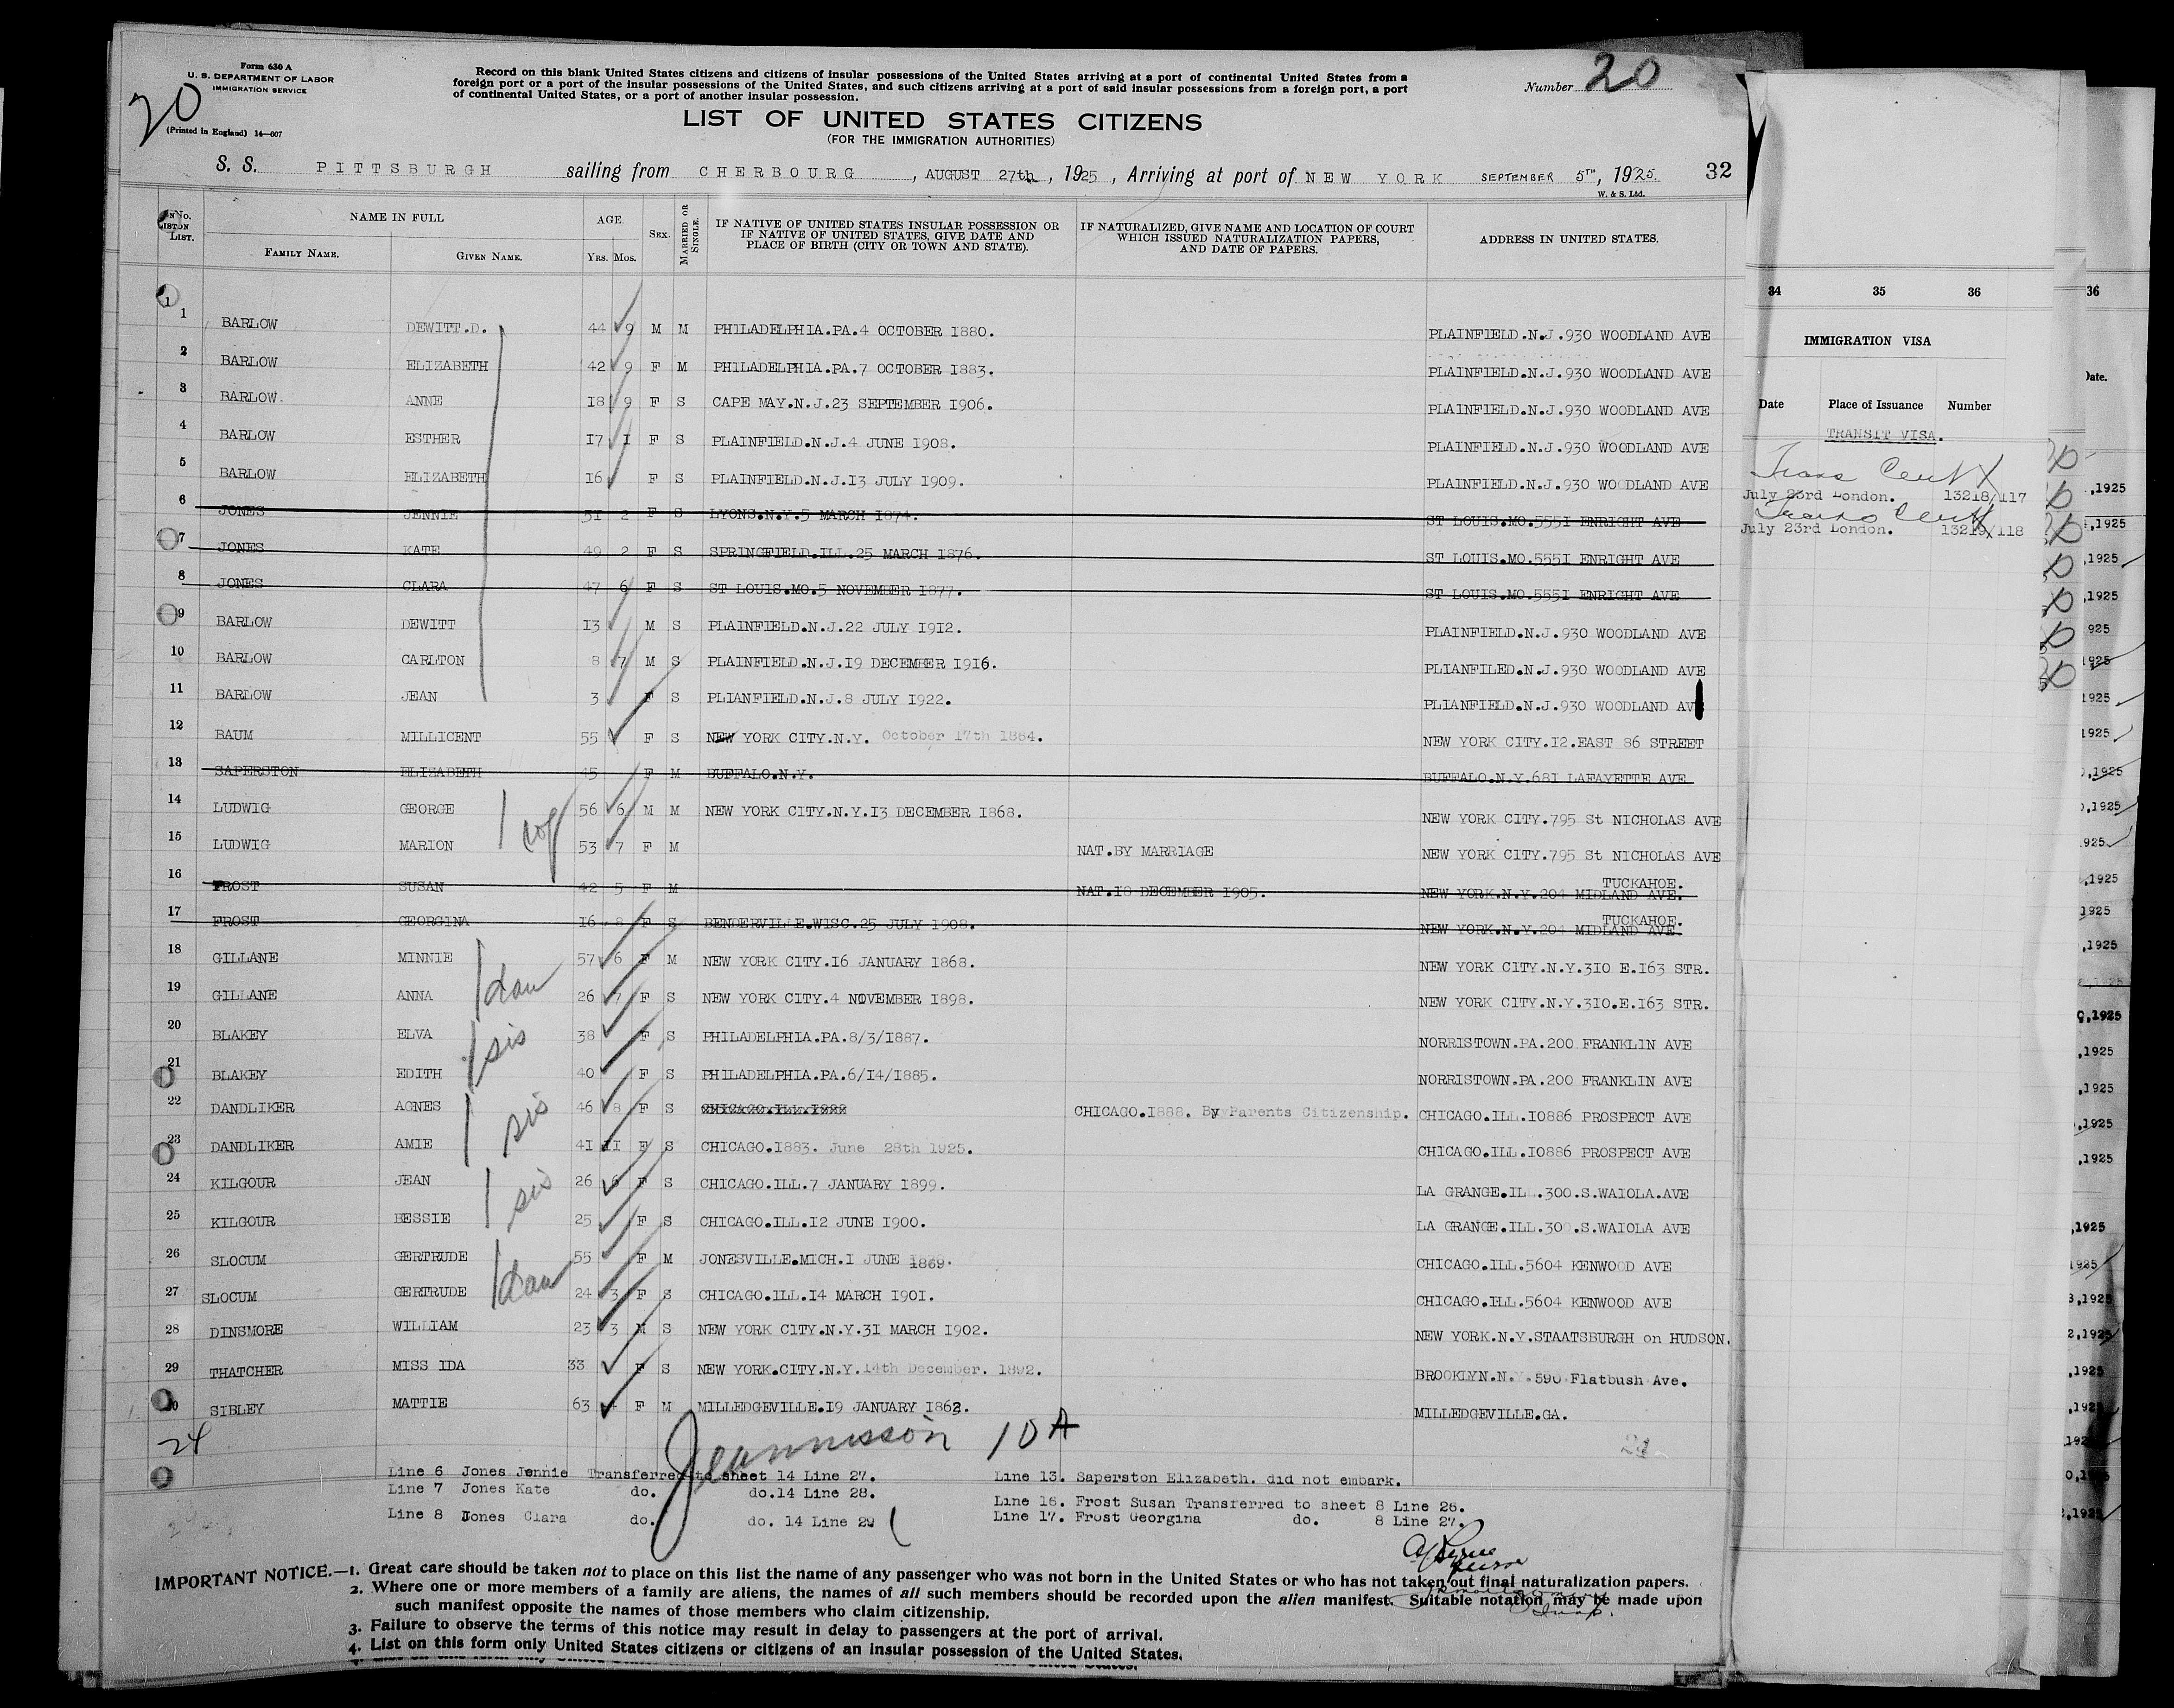 Form 630 A
U. S. DEPARTMENT OF LABOR
IMMIGRATION SERVICE
20
(Printed in England) 14—607
Record on this blank United States citizens and citizens of insular possessions of the United States arriving at a port of continental United States from a
foreign port or a port of the insular possessions of the United States, and such citizens arriving at a port of said insular possessions from a foreign port, a port
of continental United States, or a port of another insular possession.
Number 20
LIST OF UNITED STATES CITIZENS
(FOR THE IMMIGRATION AUTHORITIES)
S. S. PITTSBURGH sailing from CHERBOURG, AUGUST 27th, 1925, Arriving at port of NEW YORK SEPTEMBER 5TH, 1925. 32
W. & S. Ltd.
No. LIST. NAME IN FULL FAMILY NAME. GIVEN NAME. AGE. YRS. MOS. SEX. MARRIED OR SINGLE.
IF NATIVE OF UNITED STATES INSULAR POSSESSION OR
IF NATIVE OF UNITED STATES, GIVE DATE AND
PLACE OF BIRTH (CITY OR TOWN AND STATE).
IF NATURALIZED, GIVE NAME AND LOCATION OF COURT
WHICH ISSUED NATURALIZATION PAPERS,
AND DATE OF PAPERS.
ADDRESS IN UNITED STATES.
1 BARLOW DEWITT.D. 44 9 M M PHILADELPHIA.PA.4 OCTOBER 1880. PLAINFIELD.N.J.930 WOODLAND AVE
2 BARLOW ELIZABETH 42 9 F M PHILADELPHIA.PA.7 OCTOBER 1883. PLAINFIELD.N.J.930 WOODLAND AVE
3 BARLOW. ANNE 18 9 F S CAPE MAY.N.J.23 SEPTEMBER 1906. PLAINFIELD.N.J.930 WOODLAND AVE
4 BARLOW ESTHER 17 1 F S PLAINFIELD.N.J.4 JUNE 1908. PLAINFIELD.N.J.930 WOODLAND AVE
5 BARLOW ELIZABETH 16 F S PLAINFIELD.N.J.13 JULY 1909. PLAINFIELD.N.J.930 WOODLAND AVE
6 JONES JENNIE 51 2 F S LYONS.N.Y.5 MARCH 1874. ST LOUIS.MO.5551 ENRIGHT AVE
7 JONES KATE 49 2 F S SPRINGFIELD.ILL.25 MARCH 1876. ST LOUIS.MO.5551 ENRIGHT AVE
8 JONES CLARA 47 6 F S ST LOUIS.MO.5 NOVEMBER 1877. ST LOUIS.MO.5551 ENRIGHT AVE
9 BARLOW DEWITT 13 M S PLAINFIELD.N.J.22 JULY 1912. PLAINFIELD.N.J.930 WOODLAND AVE
10 BARLOW CARLTON 8 7 M S PLAINFIELD.N.J.19 DECEMBER 1916. PLIANFILED.N.J.930 WOODLAND AVE
11 BARLOW JEAN 3 F S PLIANFIELD.N.J.8 JULY 1922. PLIANFIELD.N.J.930 WOODLAND AVE
12 BAUM MILLICENT 55 F S NEW YORK CITY.N.Y. October 17th 1864. NEW YORK CITY.12.EAST 86 STREET
13 SAPERSTON ELIZABETH 45 F M BUFFALO.N.Y. BUFFALO.N.Y.681 LAFAYETTE AVE
14 LUDWIG GEORGE 56 6 M M NEW YORK CITY.N.Y.13 DECEMBER 1868. NEW YORK CITY.795 St NICHOLAS AVE
15 LUDWIG MARION 53 7 F M NAT.BY MARRIAGE NEW YORK CITY.795 St NICHOLAS AVE
16 FROST SUSAN 42 5 F M NAT.18 DECEMBER 1905. TUCKAHOE. NEW YORK.N.Y.204 MIDLAND AVE.
17 FROST GEORGINA 16 8 F S BENDERVILLE.WISC.25 JULY 1908. TUCKAHOE. NEW YORK.N.Y.204 MIDLAND AVE.
18 GILLANE MINNIE 57 6 F M NEW YORK CITY.16 JANUARY 1868. NEW YORK CITY.N.Y.310 E.163 STR.
19 GILLANE ANNA dau 26 7 F S NEW YORK CITY.4 NOVEMBER 1898. NEW YORK CITY.N.Y.310.E.163 STR.
20 BLAKEY ELVA sis 38 F S PHILADELPHIA.PA.8/3/1887. NORRISTOWN.PA.200 FRANKLIN AVE
21 BLAKEY EDITH 40 F S PHILADELPHIA.PA.6/14/1885. NORRISTOWN.PA.200 FRANKLIN AVE
22 DANDLIKER AGNES sis 46 8 F S CHICAGO.1888. By Parents Citizenship. CHICAGO.ILL.10886 PROSPECT AVE
23 DANDLIKER AMIE 41 11 F S CHICAGO.1883. June 28th 1925. CHICAGO.ILL.10886 PROSPECT AVE
24 KILGOUR JEAN sis 26 6 F S CHICAGO.ILL.7 JANUARY 1899. LA GRANGE.ILL.300.S.WAIOLA.AVE
25 KILGOUR BESSIE 25 F S CHICAGO.ILL.12 JUNE 1900. LA GRANGE.ILL.300.S.WAIOLA AVE
26 SLOCUM GERTRUDE 55 F M JONESVILLE.MICH.1 JUNE 1869. CHICAGO.ILL.5604 KENWOOD AVE
27 SLOCUM GERTRUDE dau 24 3 F S CHICAGO.ILL.14 MARCH 1901. CHICAGO.ILL.5604 KENWOOD AVE
28 DINSMORE WILLIAM 23 3 M S NEW YORK CITY.N.Y.31 MARCH 1902. NEW YORK.N.Y.STAATSBURGH on HUDSON.
29 THATCHER MISS IDA 33 F S NEW YORK.CITY.N.Y.14th December. 1892. BROOKLYN.N.Y.590 Flatbush Ave.
30 SIBLEY MATTIE 63 F M MILLEDGEVILLE.19 JANUARY 1862. MILLEDGEVILLE.GA.
24 10 A
Line 6 Jones Jennie Transferred to sheet 14 Line 27. Line 13. Saperston Elizabeth. did not embark.
Line 7 Jones Kate do. do.14 Line 28.
Line 16. Frost Susan Transferred to sheet 8 Line 26.
Line 8 Jones Clara do. do. 14 Line 29 Line 17. Frost Georgina do. 8 Line 27.
IMPORTANT NOTICE.—1. Great care should be taken not to place on this list the name of any passenger who was not born in the United States or who has not taken out final naturalization papers.
2. Where one or more members of a family are aliens, the names of all such members should be recorded upon the alien manifest. Suitable notation may be made upon
such manifest opposite the names of those members who claim citizenship.
3. Failure to observe the terms of this notice may result in delay to passengers at the port of arrival.
4. List on this form only United States citizens or citizens of an insular possession of the United States.
34 35 36
IMMIGRATION VISA
Date Place of Issuance Number
TRANSIT VISA.
July 23rd London. 13218/117
July 23rd London. 13219/118
36
Date.